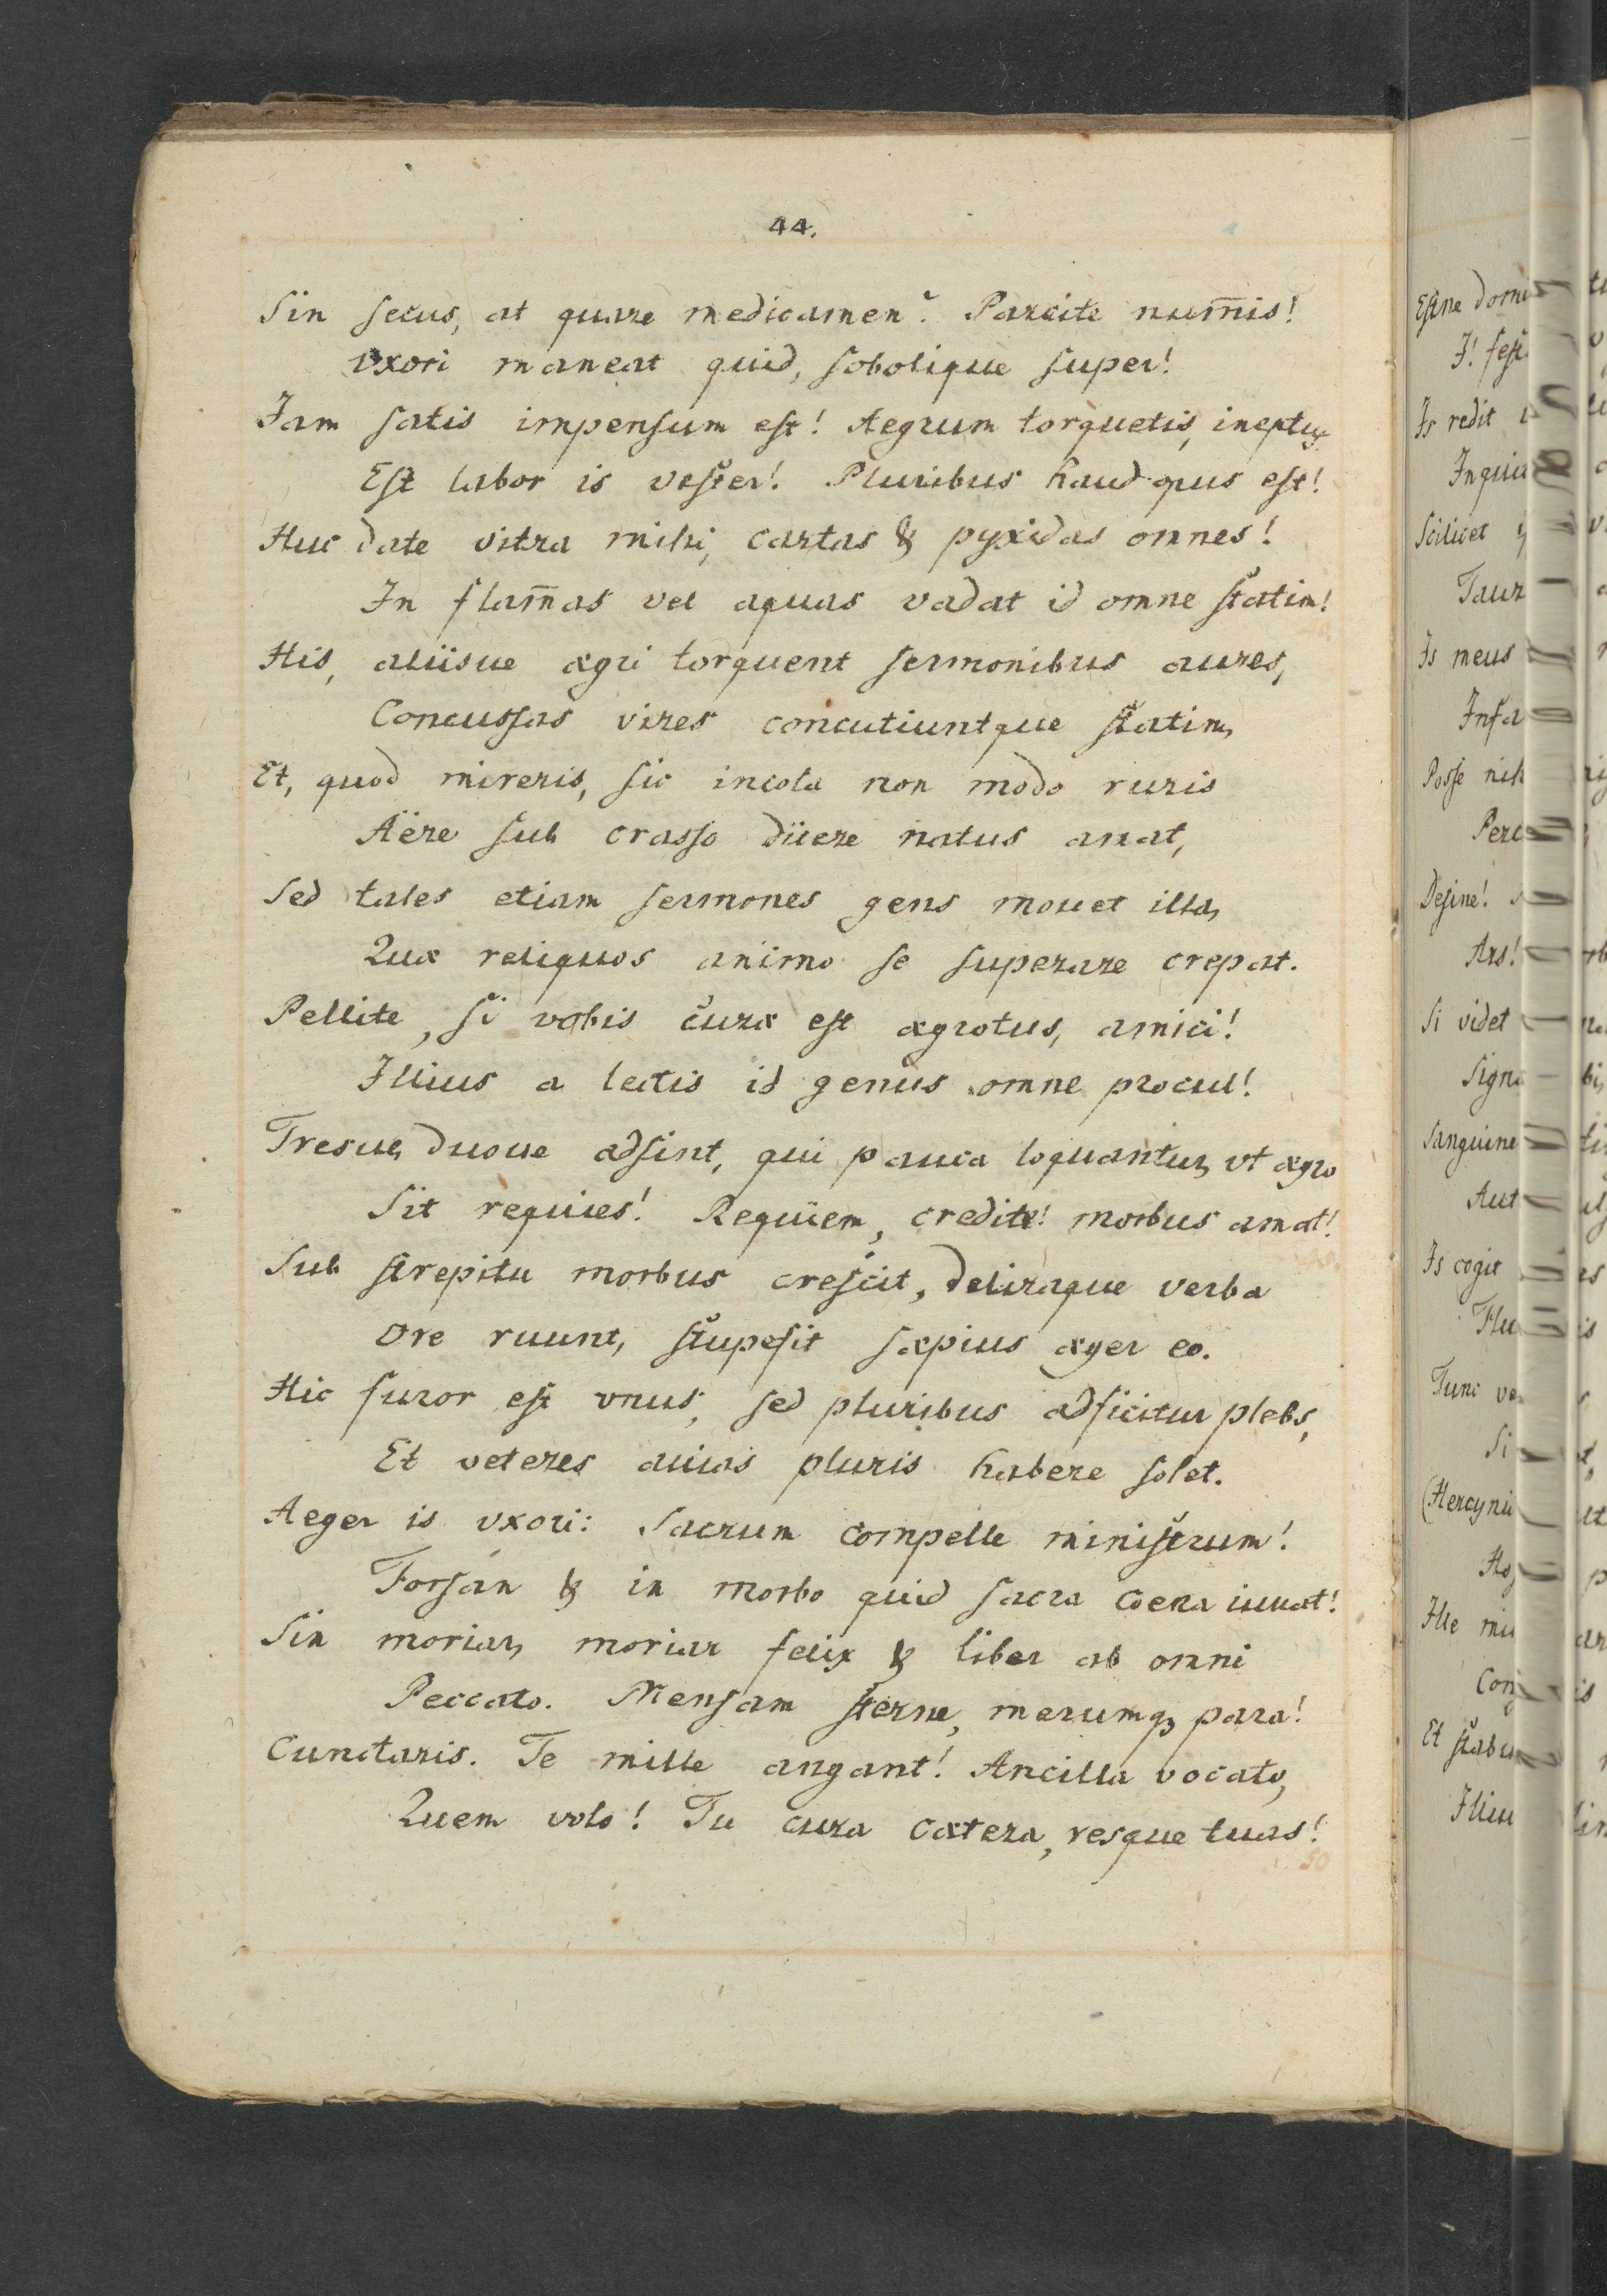 44.
Sin secus, at quare medicamen? Parcite num̄is!
Vxori maneat quid, sobolique super!
Jam satis impensum est! Aegrum torquetis, ineptus
Est labor is vester! Pluribus haud opus est!
Huc date vitra mihi, cartas & pyxidas omnes!
In flam̄as vel aquas vadat id omne statim!
His, aliisue ægri torquent sermonibus aures,
Concussas vires concutiuntque statim,
Et, quod mireris, sic incola non modo ruris
Aëre sub crasso dicere natus amat,
Sed tales etiam sermones gens mouet illa,
Quæ reliquos animo se superare crepat.
Pellite, si vobis curæ est ægrotus, amici!
Illius a lectis id genus omne procul!
Tresue, duoue adsint, qui pauca loquantur, vt ægro
Sit requies! Requiem, credite! morbus amat!
Sub strepitu morbus crescit, deliraque verba
Ore ruunt, stupefit sæpius æger eo.
Hic furor est vnus, sed pluribus adficitur plebs,
Et veteres auias pluris habere solet.
Aeger is vxori: Sacrum compelle ministrum!
Forsan & in morbo quid sacra coena iuuat!
Sin moriar, moriar felix & liber ab omni
Peccato. Mensam sterne, merumq₃ para!
Cunctaris. Te mille angant! Ancilla vocato,
Quem volo! Tu cura cætera, resque tuas!
50
Estne domi
Is redit
Scilicet
Is meus
Posse nih
Desine!
Ars!
Si videt
Sanguine
Aut
Is cogit
Tunc ve
Si
(Hercyni
Et